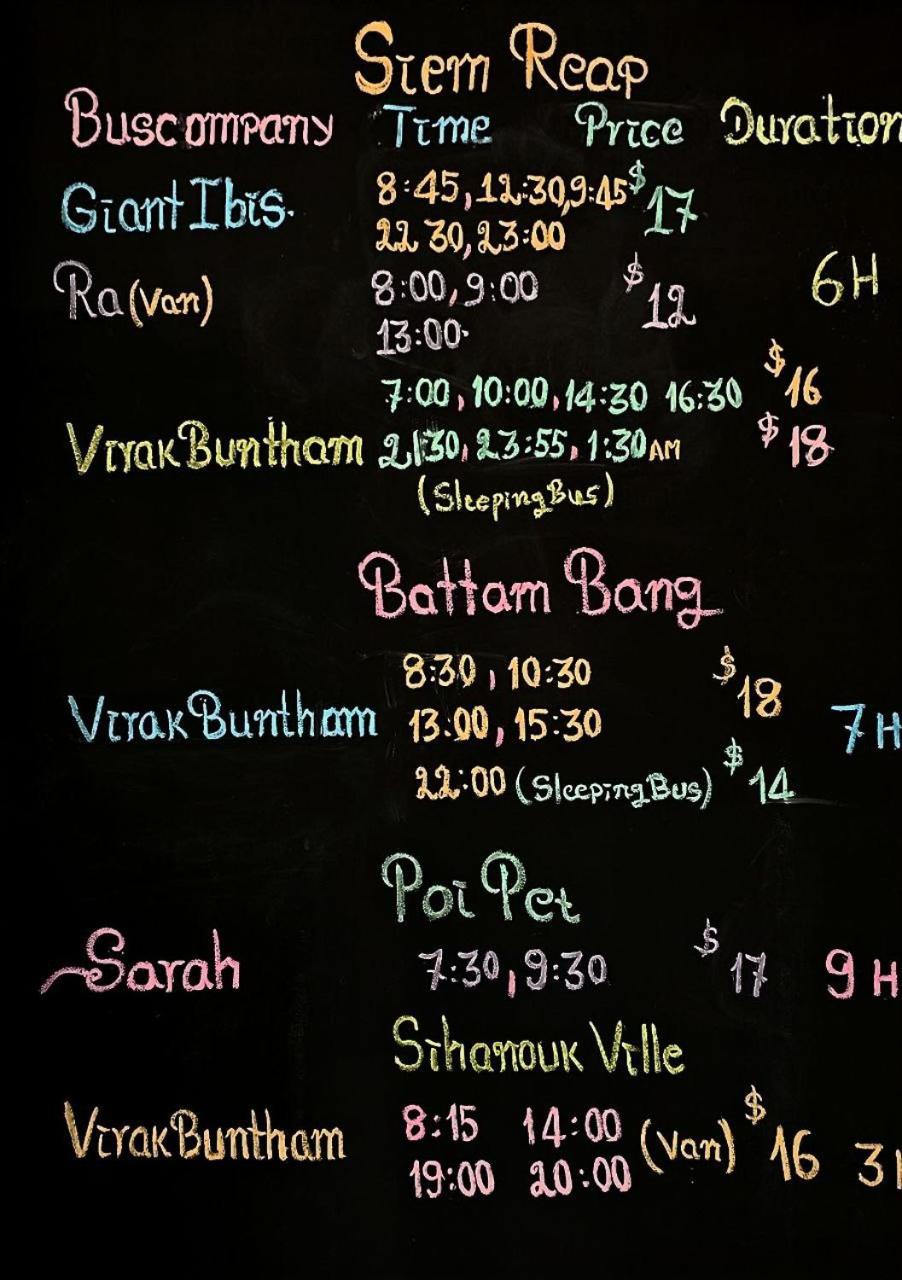 Siem Reap
Buscompany Time Price Duration
Giant Ibis. 8:45, 12:30, 9:45 $17
22 30, 23:00
Ra (Van) 8:00, 9:00 $12 6H
13:00.
7:00, 10:00, 14:30 16:30 $16
Virak Buntham 21:30, 23:55, 1:30 AM $18
(Sleeping Bus)
Battam Bang
8:30, 10:30 $18
Virak Buntham 13:00, 15:30 7H
22:00 (Sleeping Bus) $14
Poi Pet
Sarah 7:30, 9:30 $17 9H
Sihanouk Ville
Virak Buntham 8:15 14:00 (Van) $16 3H
19:00 20:00